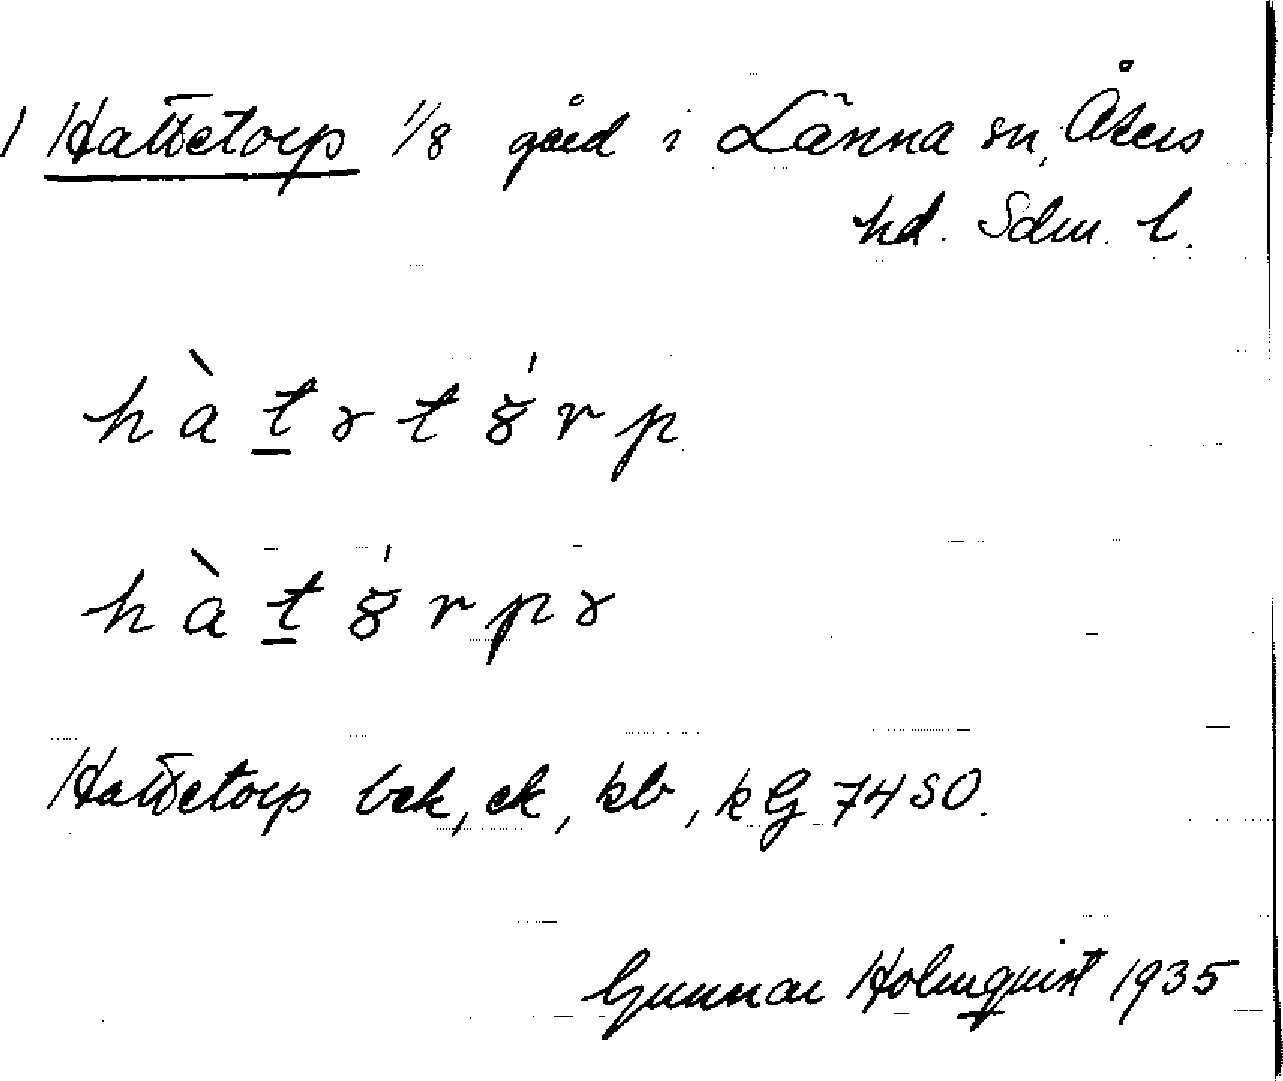 1 Hattetorp 1/8 gård i Länna sn, Åkers
hd. Sdm. l.
h à t̲ ɤ t ŏ́ r p
h à t̲ ŏ́ r p ɤ
Hattetorp bck, ck, kb, kG 74 SO.
Gunnar Holmquist 1935